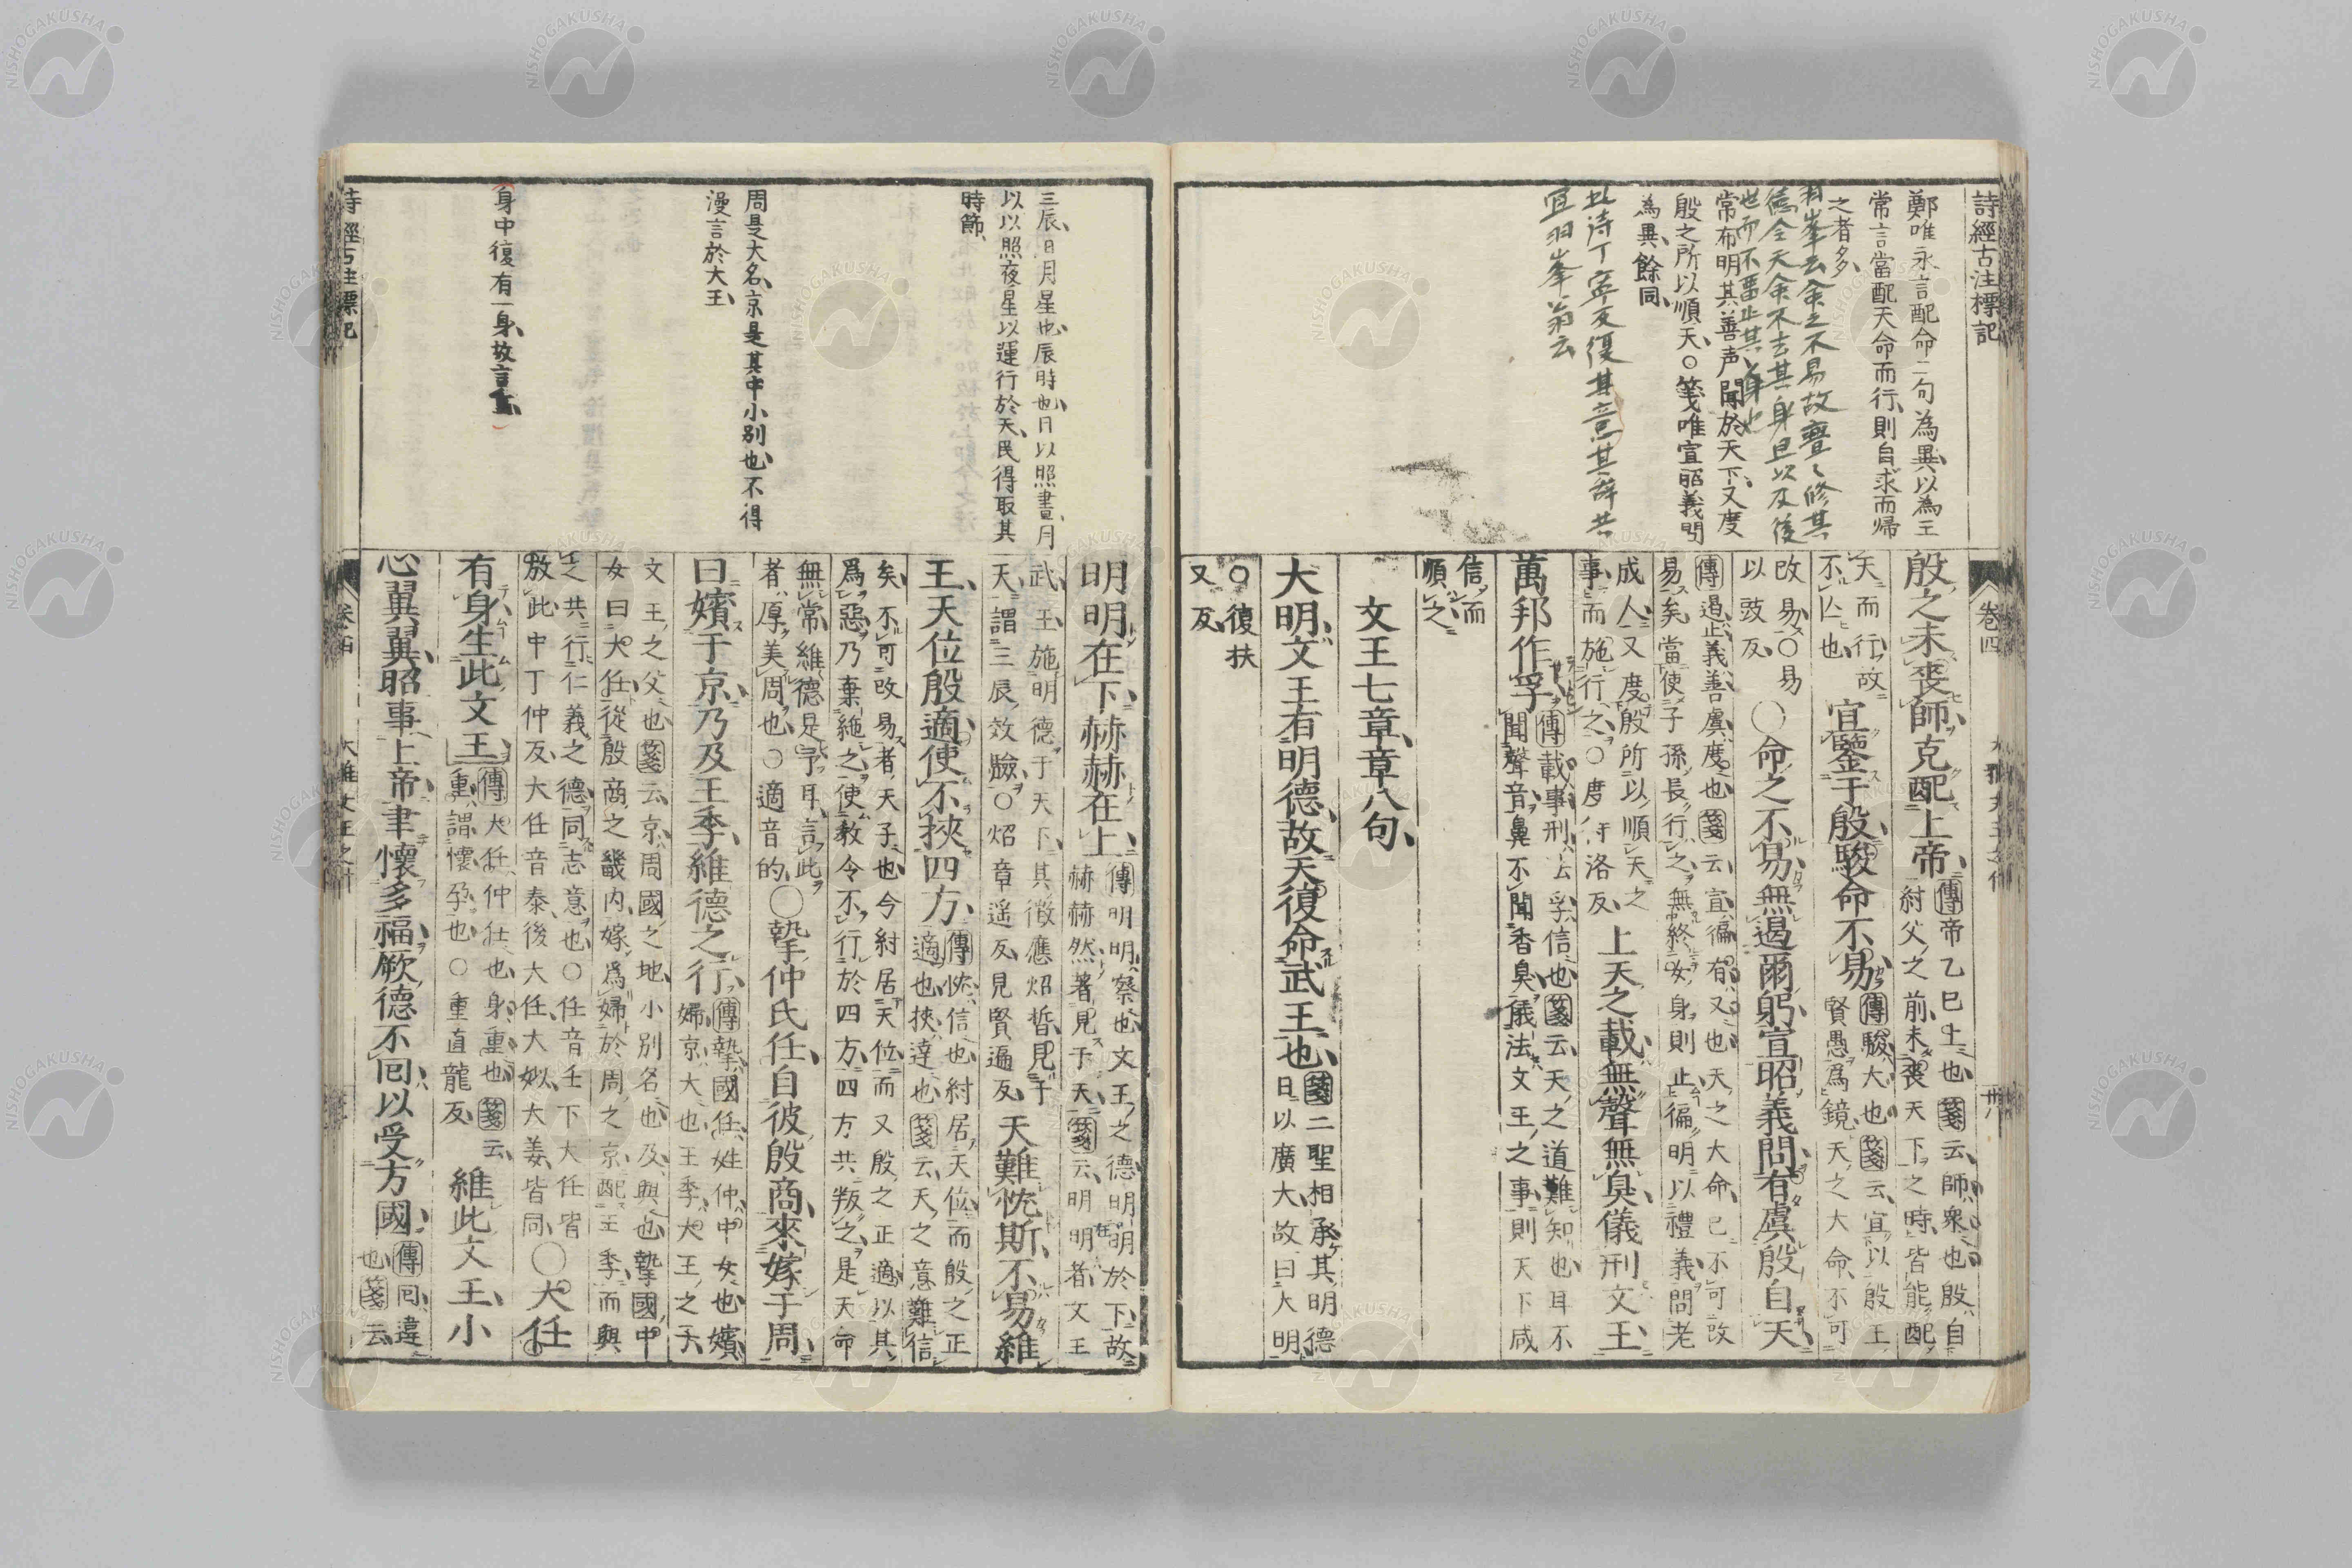 詩經古注標記
鄭唯永言配命二句為異以為王
常言當配天命而行則自求而帰
之者多
羽峯云命之不易故亹々修其
德今天命不去其身且以及後
世而不啻止其身也
常布明其善声聞於天下又度
殷之所以順天○箋唯宣昭義問
為異餘同
此诗丁寧反復其意其辞共
宜羽峯翁云
殷之未喪師克配上帝傳帝乙已上也箋云師衆也殷自
紂父之前未喪天下之時皆能配
天而行故
不亡也
宜鑒于殷駿命不易傳駿大也箋云宜以殷王
賢愚為鏡天之大命不可
改易○易
以豉反
○命之不易無遏爾躬宣昭義問有虞殷自天
傳遏止義善虞度也箋云宣徧有又也天之大命已不可改
易矣當使子孫長行之無終女身則止徧明以禮義問老
成人又度殷所以順天之
事而施行之○度待洛反
上天之載無聲無臭儀刑文王
萬邦作孚傳載事刑法孚信也箋云天之道難知也耳不
聞聲音鼻不聞香臭儀法文王之事則天下咸
信而
順之
文王七章章八句
大明文王有明德故天復命武王也箋二聖相承其明德
日以廣大故曰大明
○復扶
又反
卷四
卅八
三辰日月星也辰時也日以照晝月
以以照夜星以運行於天民得取其
時節
周是大名京是其中小別也不得
漫言於大王
身中復有一身故言重
明明在下赫赫在上傳明明察也文王之德明明於下故
赫赫然著見于天箋云明明者文王
武王施明德于天下其徵應炤晢見于
天謂三辰效驗○炤章遥反見賢遍反
天難忱斯不易維
王天位殷適使不挾四方傳忱信也紂居天位而殷之正
適也挾達也箋云天之意難信
矣不可改易者天子也今紂居天位而又殷之正適以其
爲惡乃棄絶之使教令不行於四方四方共叛之是天命
無常維德是予耳言此
者厚美周也○適音的
○摯仲氏任自彼殷商來嫁于周
曰嬪于京乃及王季維德之行傳摯國任姓仲中女也嬪
婦京大也王季大王之子
文王之父也箋云京周國之地小別名也及與也摯國中
女曰大任從殷商之畿内嫁爲婦於周之京配王季而與
之共行仁義之德同志意也○任音壬下大任皆
放此中丁仲反大任音泰後大任大姒大姜皆同
○大任
有身生此文王傳大任仲任也身重也箋云
重謂懷孕也○重直龍反
維此文王小
心翼翼昭事上帝聿懷多福厥德不回以受方國傳回違
也箋云
卷四
大雅文王之什